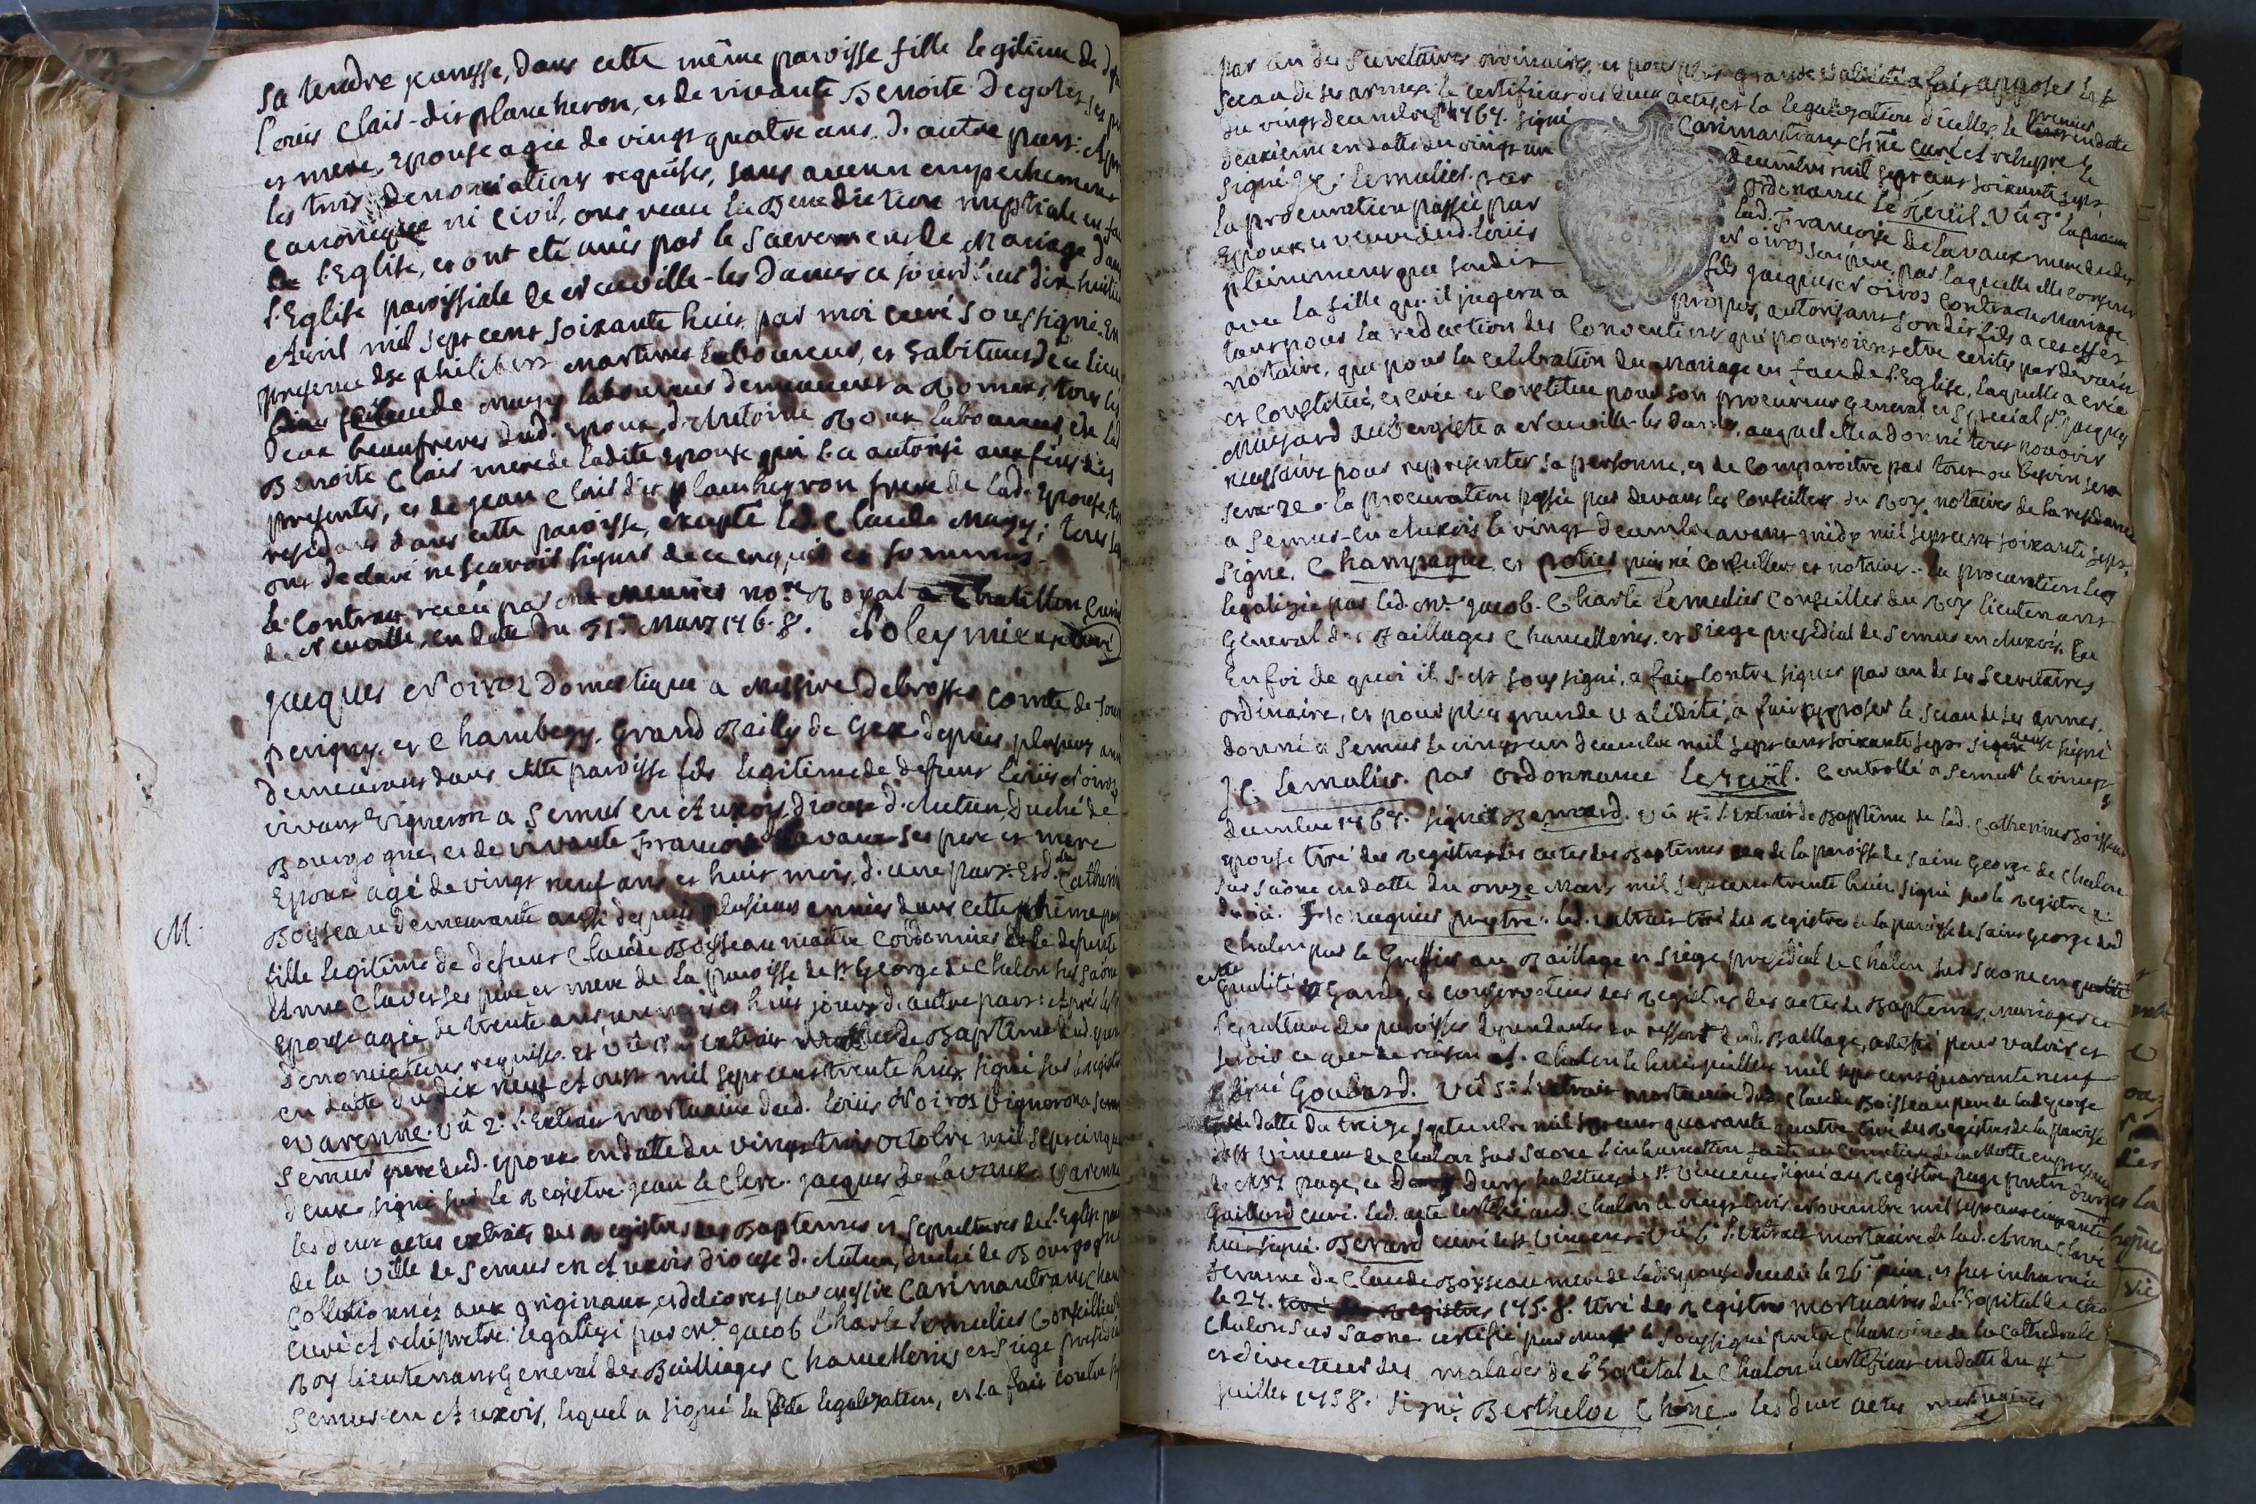 Sa tendre jeunesse, dans cette même paroisse fille legitime de
Louis Clair-dit plancheron, et de vivante Benoite Degoles ses
et mere, Epouse agée de vingt quatre ans d'autre part: Apr
les trois denonciations requises, sans aucun empechement
Canonique ni civil, ont receu la Benediction nuptiale en fa
de l'Eglise, et ont eté unis par le Sacrement de Mariage dans
l'Eglise paroissiale de Neuville-les Dames ce jourd'hui dix huit
Avril mil sept cent soixante huit par moi curé soussigné. En
presence de philibert Martinet laboureur, et habitant de ce lieu
Claude Mugy laboureur demeurant a Romans, tous les
deux beaufreres dud. Epoux, d'Antoine Roux laboureur, de lad.
Benoite Clair mere de ladite Epouse qui l'a autorisé aux fins des
presentes, et de jean Clair dit plancheyron frere de lad. Epouse,
residans dans cette paroisse, excepté led. Claude Mugy; tous
ont declaré ne scavoir signer de ce enquis et sommés.
le Contrat receu par Me Meunier nore Royal a Chatillon
de Neuville, en date du 31e Mars 1768. Poleymieux curé
jacques Noirot Domestique a Messire Debrosses comte de Tour
perigny, et Chambezy, Grand Bailly de Gex depuis plusieurs ann
demeurant dans cette paroisse fils legitime de defunt Louis Noirot
vivant Vigneron a Semur en Auxois diocese d'Autun, Duché de
Bourgogne, et de vivante Francoise Lavaux ses pere et mere
Epoux agé de vingt neuf ans et huit mois, d'une part. Et d. lle Catherin
Boisseau demeurante aussi depuis plusieurs années dans cette même par
fille legitime de defunt Claude Boisseau maitre Cordonnier et de defunte
Anne Claver ses pere et mere de la paroisse de St George de Chalon sur Saône
Epouse agée de trente ans un mois et huit jours d'autre part: Aprés les
denonciations requises. Et Vû 1° l'extrait de Baptême dud. epoux
en datte du dix neuf Aoust mil sept cent trente huit, signé sur le registre
Varenne. Vû 2° l'Extrait mortuaire dud. Louis Noirot Vigneron a Semur
Semur pere dud. epoux en datte du vingt trois octobre mil sept cinqu
deux, signé sur le Registre jean le Clerc. jacques de Lavaux. Varenne
les deux actes extraits des Registres des Baptemes et Sepultures de l'Eglise
de la Ville de Semur en Auxois diocese d'Autun, duché de Bourgogne
Collationnés aux originaux, et delivrés par messire Carimantrant
curé Archiprêtre: legalizé par Mr. jacob Charle Lemulier Conseiller
Roy lieutenant General des Bailliages Chancelleries et Siège presidi
Semur en Auxois, lequel a signé la dite legalisation, et la fait contre
M.
par un des Secretaires ordinaires, et pour plus grande validité a fait apposer le
sceau de ses armes. le certificat des deux actes, et la legalization d'icelles, le premier en date
du vingt decembre 1767. signé Carimantrant Chne Curé Archiprêtre le
deuxieme en datte du vingt un decembre mil sept cent soixante sept
signé J.C. Lemulier. par ordonnance le Reüil. Vû 3° la procur
la procuration passée par lad. Francoise de Lavaux mere dudit
Epoux et veuve dud. Louis Noirot son pere, par laquelle elle consent
pleinement que sondit fils jacques Noirot contracte Mariage
avec la fille qu'il jugera a propos, autorisant sondit fils a cet effet
tant pour la redaction des Conventions qui pourroient etre ecrites par devant
notaire, que pour la celebration du Mariage en face de l'Eglise, laquelle a creé
et constitué, et crée et constitue pour son procureur general et special Sr. jacques
Müsard aubergiste a Neuville-les Dames, auquel elle a donné tous pouvoir
necessaire pour representer sa personne, et de comparoitre par tout ou besoin sera
sera. Ze. la procuration passée par devant les Conseillers du Roy notaires de la residence
a Semur-en Auxois le vingt decembre avant midy mil sept cent soixante sept.
Signé. Champagne et potier puiné Conseillers et notaires. la procuration
legalizée par led. Mr. jacob. Charle Lemulier Conseiller du Roy lieutenant
General des Baillages Chancelleries, et Siege presidial de Semur en Auxois.
En foi de quoi il s'est soussigné, a fait contre signer par un de ses Secretaires
ordinaire, et pour plus grande Validité, a fait apposer le Sceau de ses armes.
donné a Semur le vingt un decembre mil sept cent soixante sept signé
J.C. Lemulier. par ordonnance Le Reüil. Controllé a Semur le vingt
decembre 1767. signé Bernard. Vû 4° l'Extrait de Baptême de lad. Catherine Boisseau
epouse tiré des Registres des actes des Baptemes de la paroisse de Saint George de Chalon
sur Saône en datte du onze Mars mil sept cent trente huit signé sur le Registre
prestre. led. extrait tiré des Registres de la paroisse de Saint George dud.
Chalon par le Greffier au Baillage et Siege presidial de Chalon sur Saone en qualité
qualité de Garde, et conservateur des Registres des actes de Baptemes, Mariages et
Sepultures des paroisses dependantes du ressort dud. Baillage, attesté pour valoir et
servir ce que de raison. Chalon le huit juillet mil sept cent quarante neuf
signé Goubard. Vû 5° l'extrait mortuaire dud. Claude Boisseau pere de lad. Epouse
en datte du treize septembre mil sept cent quarante quatre tiré des Registres de la paroisse
de St Vincent de Chalon sur Saone l'inhumation faite au cimetiere de la Motte en presence
Gaillard curé. led. acte certifié aud. Chalon le vingt trois Novembre mil sept cent cinquante
huit signé. Berard curé de St Vincent. Vû 6° l'Extrait mortuaire de lad. Anne Claver
femme de Claude Boisseau mere de lad. Epouse decedée le 26e juin, et fut inhumée
le 27. 1758. tiré des Registres mortuaires de l'hopital de
Chalon sur Saone certifié par le Soussigné prêtre Chanoine de la Cathedrale
et directeur des malades de l'hopital de Chalon le certificat en datte du 4e
juillet 1758. Signé Berthelot Chne. les deux actes mortuaires